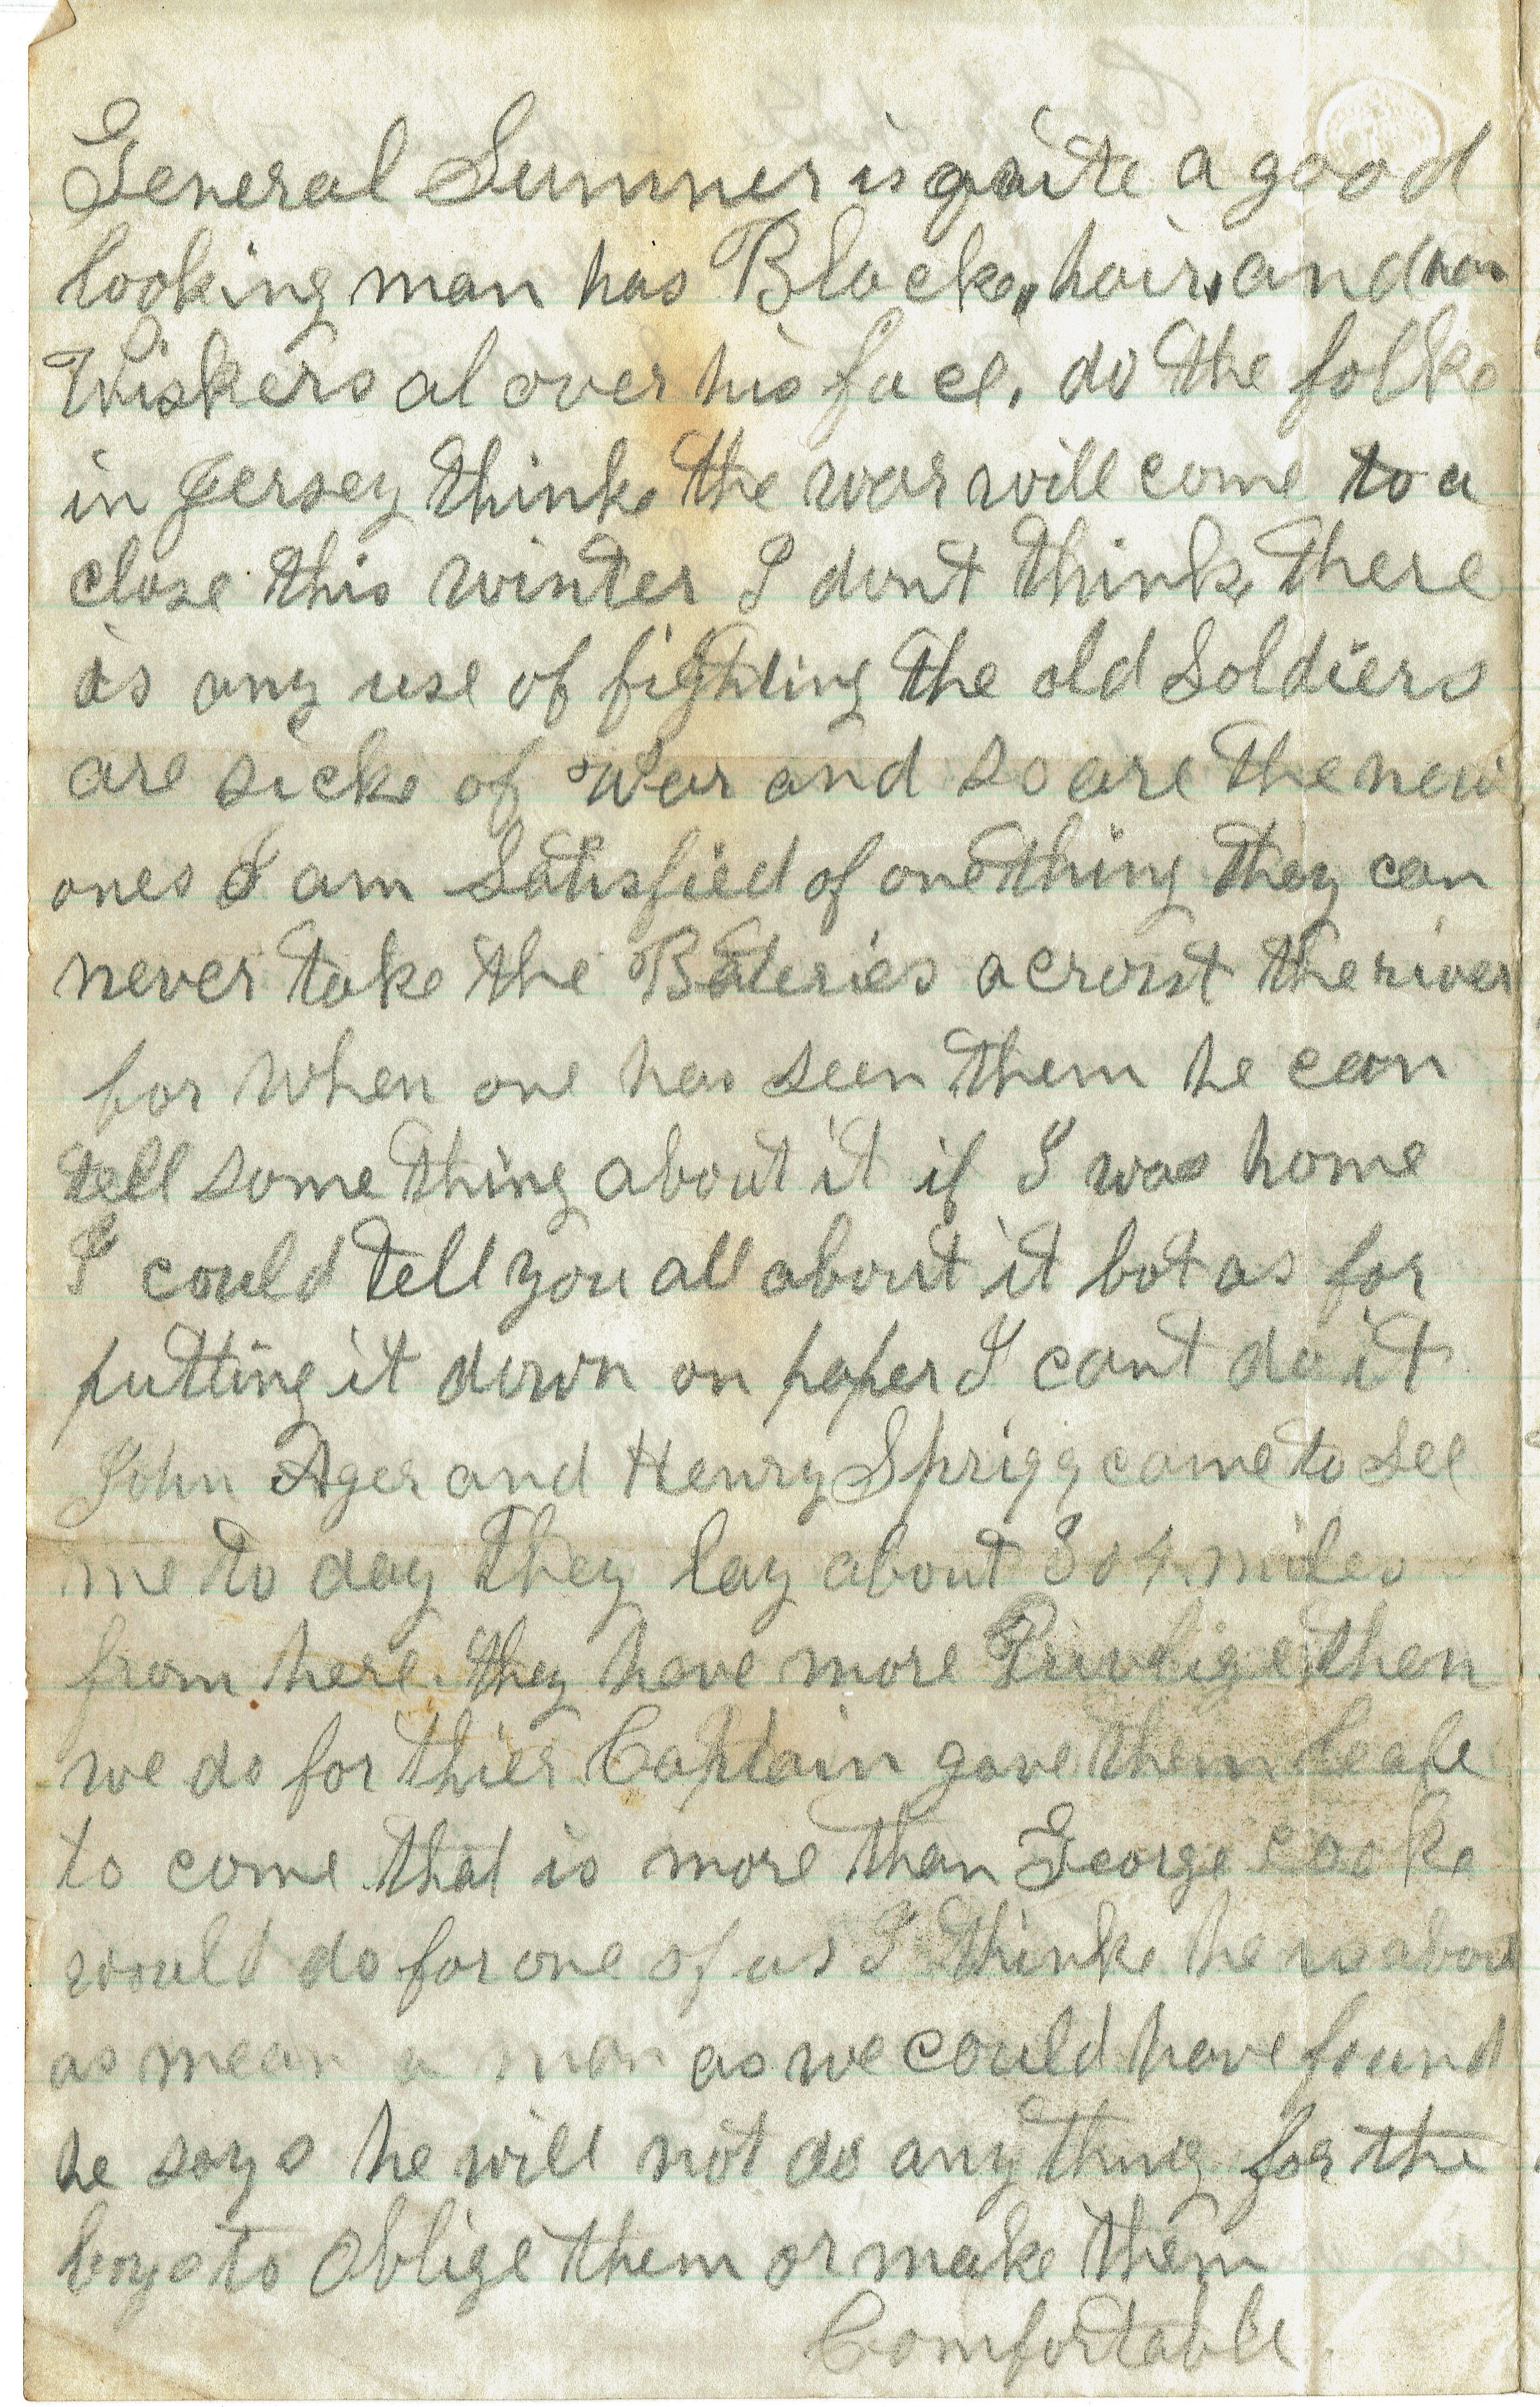 General Sumner is quite a good
looking man has Black, hair, and has
Wiskers al over his face. do the folks
in Jersey think the war will come to a
close this winter I dont think there
is any use of fighting the old Soldiers
are sick of War and so are the new
ones I am Satisfied of one thing they can
never take the Bateries acrost the river
for when one has seen them he can
tell some thing about it if I was home
I could tell you all about it bot as for
putting it down on paper I cant do it
John Ager and Henry Sprigg came to see
me to day they lay about 3 or 4 miles
from here. they have more Privlige then
we do for thier Captain gave them leave
to come that is more than George cook
would do for one of us I think he is about
as mean a man as we could have found
he says he will not do any thing for the
boys to Oblige them or make them
Comfortable